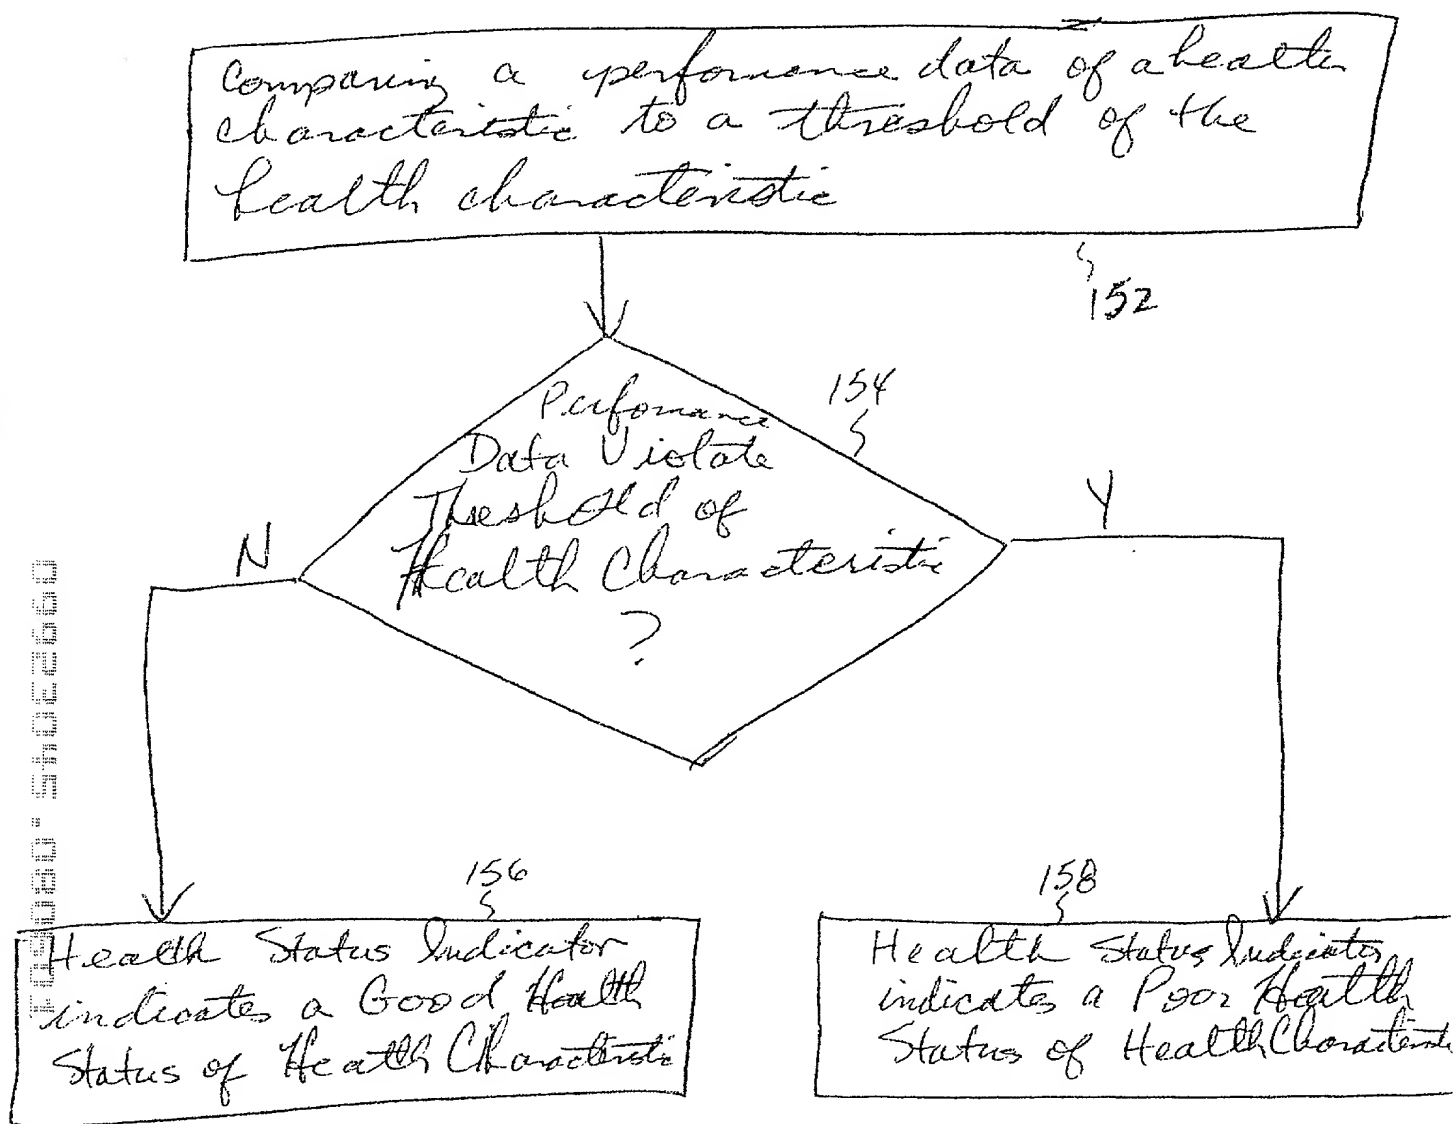 Comparing a performance data of a health
characteristic to a threshold of the
health characteristic
152
154
Performance
Data Violate
Threshold of
Health Characteristic
?
N
Y
156
Health Status Indicator
indicates a Good Health
Status of Health Characteristic
158
Health Status Indicator
indicates a Poor Health
Status of Health Characteristic